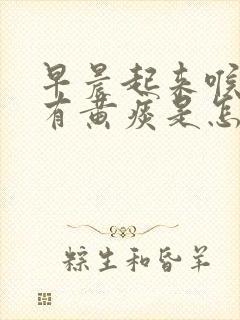 早晨起来喉
有黄痰是怎
粽生和昏羊